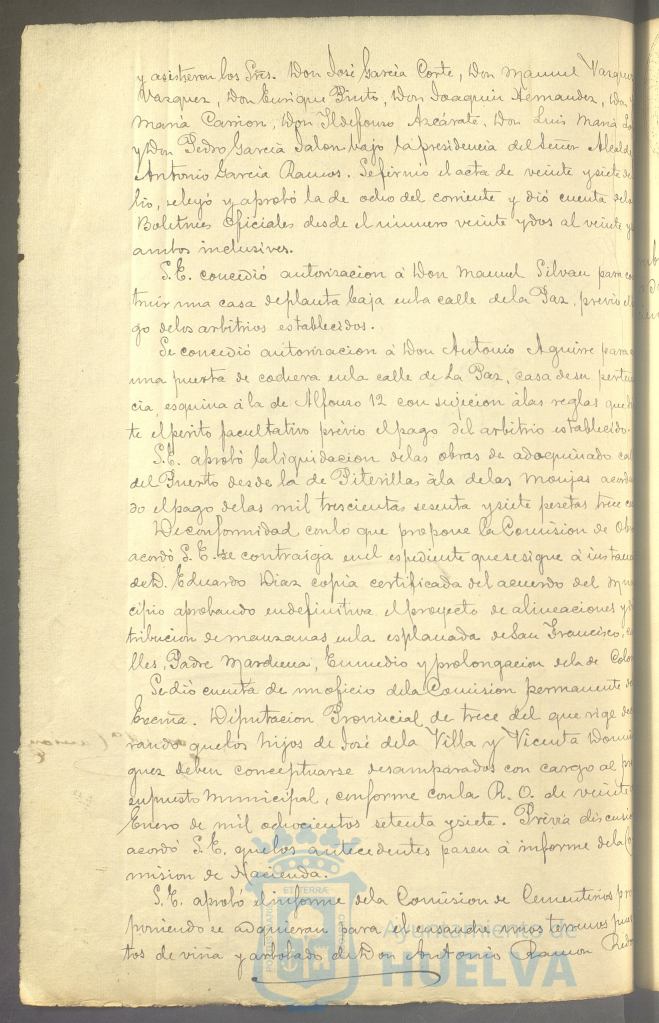 y asistieron los Sres. Don José García Corte, Don Manuel Vazquez
Vazquez, Don Enrique Pinto, Don Joaquin Hernandez, Don
Maria Carrion, Don Ildefonso Azcárate, Don Luis Maria
y Don Pedro García Jalon bajo la presidencia del Señor Alcalde
Antonio García Ramos. Se firmó el acta de veinte y siete de
lio, se leyó y aprobó la de ocho del corriente y dió cuenta de los
Boletines Oficiales desde el número veinte y dos al veinte y
ambos inclusives.
S. E. concedió autorizacion á Don Manuel Silvan para
truir una casa de planta baja en la calle de la Paz, prévio el
go de los arbitrios establecidos.
Se concedió autorizacion á Don Antonio Aguirre para
una puerta de cochera en la calle de La Paz, casa de su perten
cia, esquina á la de Alfonso 12 con sujecion á las reglas que
te el périto facultativo prévio el pago del arbitrio establecido.
S. E. aprobó la liquidacion de las obras de adoquinado
del Puerto desde la de Piterillas á la de las Monjas acordan
do el pago de las mil trescientas sesenta y siete pesetas trece
De conformidad con lo que propone la Comision de Obr
acordó S. E. se contraiga en el espediente que se sigue á instanc
de D. Eduardo Diaz copia certificada del acuerdo del Mun
cipio aprobando en definitiva el proyecto de alineaciones y
tribucion de manzanas en la esplanada de San Francisco, ca
lles, Padre Marchena, Enmedio y prolongacion de la de Colon
Se dió cuenta de un oficio de la Comision permanente de
Excma. Diputacion Provincial de trece del que rige
rando que los hijos de José de la Villa y Vicenta Domin
guez deben conceptuarse desamparados con cargo al pre
supuesto Municipal, conforme con la R. O. de veinte
Enero de mil ochocientos setenta y siete. Prévia discusion
acordó S. E. que los antecedentes pasen á informe de la Co
mision de Hacienda.
S. E. aprobó el informe de la Comision de Cementerios pro
poniendo se adquieran para el ensanche unos terrenos pues
tos de viña y arbolado de Don Antonio Ramon
Ayuntamiento de
HUELVA